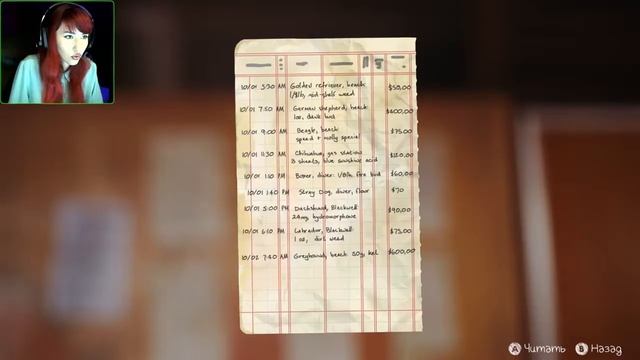 10/01 5:30 AM Golden retriever, beach $50,00
10/01 7:50 AM German shepherd, beach $600,00
1oz, dank bud
10/01 9:00 AM Beagle, beach $75,00
speed + molly special
10/01 11:30 AM Chihuahua, gas station
3 sheets, blue sunshine acid
10/01 1:10 PM Boxer, diner: 1/8th fire bud $60,00
10/01 1:40 PM Stray Dog, diner, floor $20
10/01 5:00 PM Dachshund, Blackwell $90,00
24mg hydromorphone
10/01 6:10 PM Labrador, Blackwell $75,00
1 oz, dirt weed
10/02 7:40 AM Greyhound, beach 30g, ket $600,00
A Читать B Назад